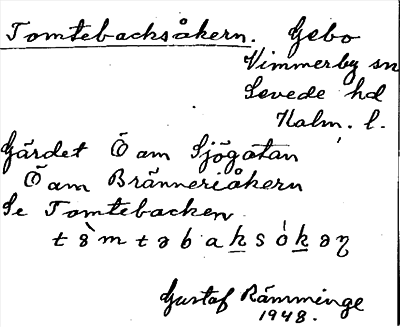 Tomtebacksåkern. Gebo
Vimmerby sn
Sevede hd
Kalm. l.
Gärdet Ö am Sjögatan
Ö am Bränneriåkern
Se Tomtebacken
Gustaf Rämminge
1948.